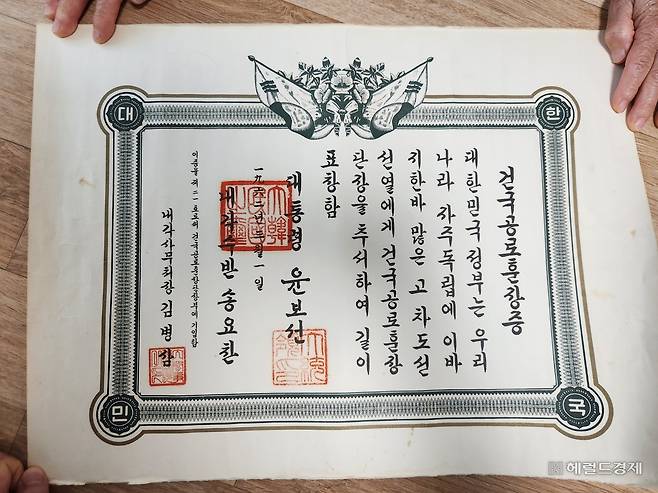 대
한
민
국
건국공로훈장증
대한민국 정부는 우리
나라 자주독립에 이바
지한바 많은 고 차도선
선열에게 건국공로훈장
단장을 추서하여 길이
표창함
一九六二년 월 一일
대통령 윤보선
내각수반 송요찬
건국공로훈장부에 기입함
내각사무처장 김병삼
헤럴드경제